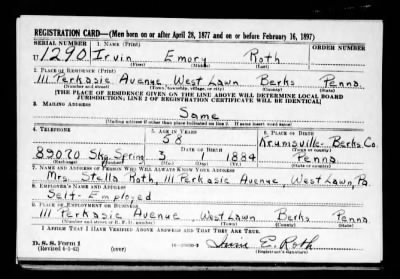 REGISTRATION CARD—(Men born on or after April 28, 1877 and on or before February 16, 1897)
SERIAL NUMBER 1. NAME (Print) ORDER NUMBER
U 1290 Irvin Emory Roth
(First) (Middle) (Last)
2. PLACE OF RESIDENCE (Print)
111 Perkasie Avenue, West Lawn Berks Penna.
(Number and street) (Town, township, village, or city) (County) (State)
[THE PLACE OF RESIDENCE GIVEN ON THE LINE ABOVE WILL DETERMINE LOCAL BOARD
JURISDICTION; LINE 2 OF REGISTRATION CERTIFICATE WILL BE IDENTICAL]
3. MAILING ADDRESS
Same
(Mailing address if other than place indicated on line 2. If same insert word same)
4. TELEPHONE 5. AGE IN YEARS 6. PLACE OF BIRTH
58 Krumsville-Berks Co.
DATE OF BIRTH (Town or county)
89070 Skg. Spring 3 1884 Penna.
(Exchange) (Number) (Mo.) (Day) (Yr.) (State or country)
7. NAME AND ADDRESS OF PERSON WHO WILL ALWAYS KNOW YOUR ADDRESS
Mrs. Stella Roth, 111 Perkasie Avenue, West Lawn, Pa.
8. EMPLOYER'S NAME AND ADDRESS
Self-Employed
9. PLACE OF EMPLOYMENT OR BUSINESS
111 Perkasie Avenue, West Lawn Berks Penna.
(Number and street or R. F. D. number) (Town) (County) (State)
I AFFIRM THAT I HAVE VERIFIED ABOVE ANSWERS AND THAT THEY ARE TRUE.
D. S. S. Form 1 Irvin E. Roth
(Revised 4-1-42) (over) (Registrant's signature)